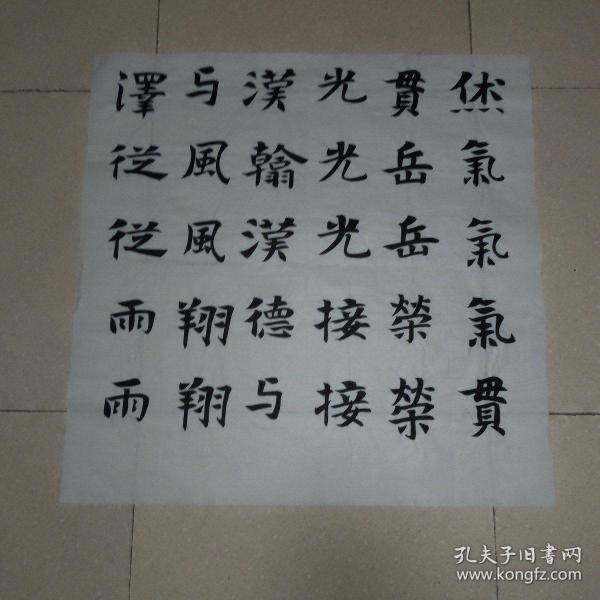 氣氣氣貫
貫岳岳榮榮
光光光接接
漢翰漢德与
与風風翔翔
澤従従雨雨
孔夫子旧書网
www.kongfz.com